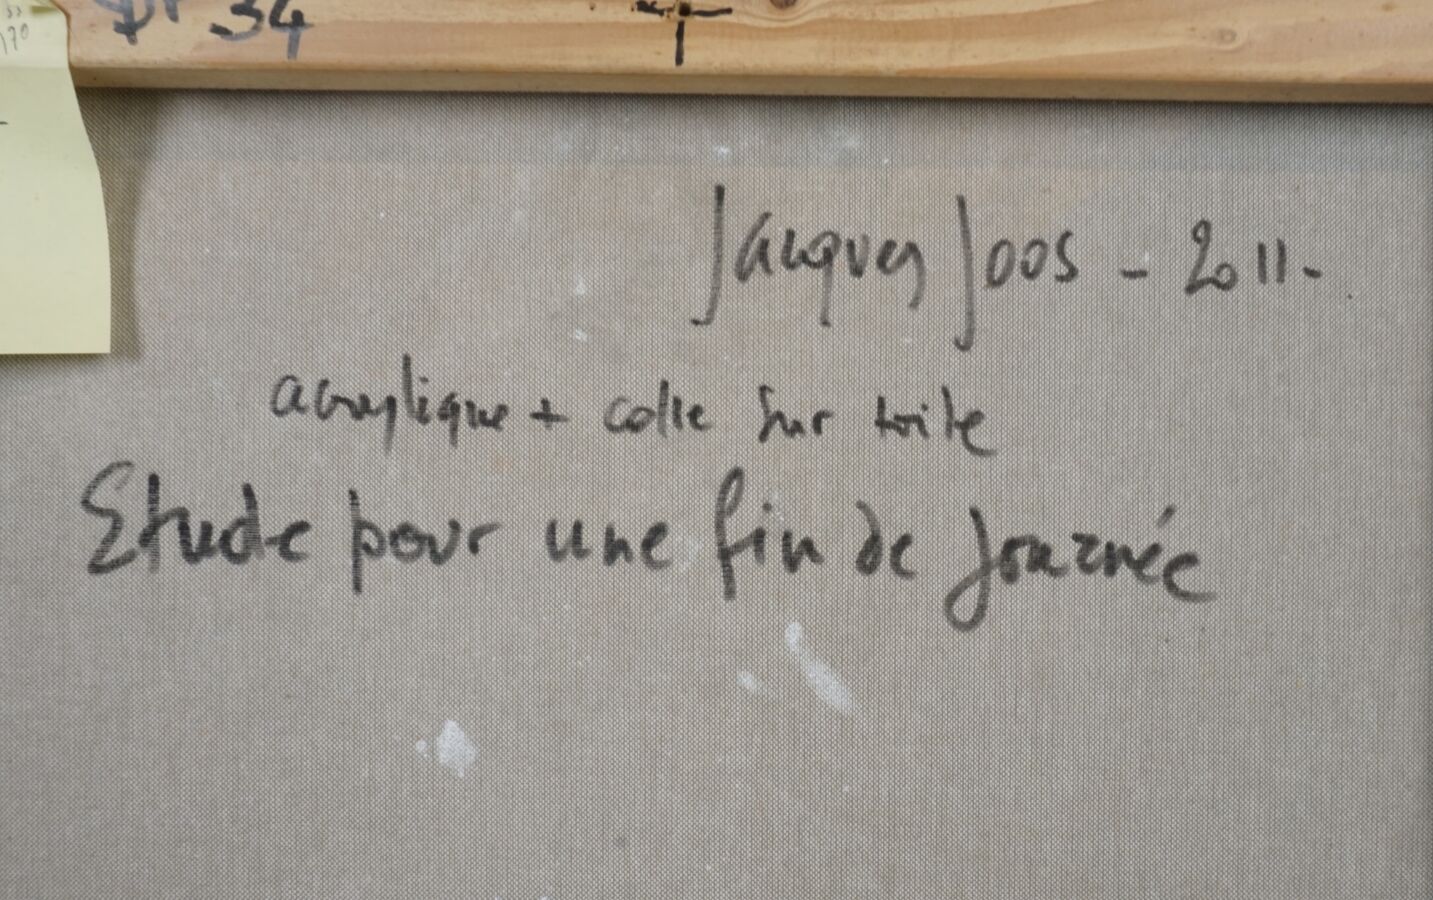 34
Jacques Joos - 2011.
acrylique + colle sur toile
Etude pour une fin de Journée